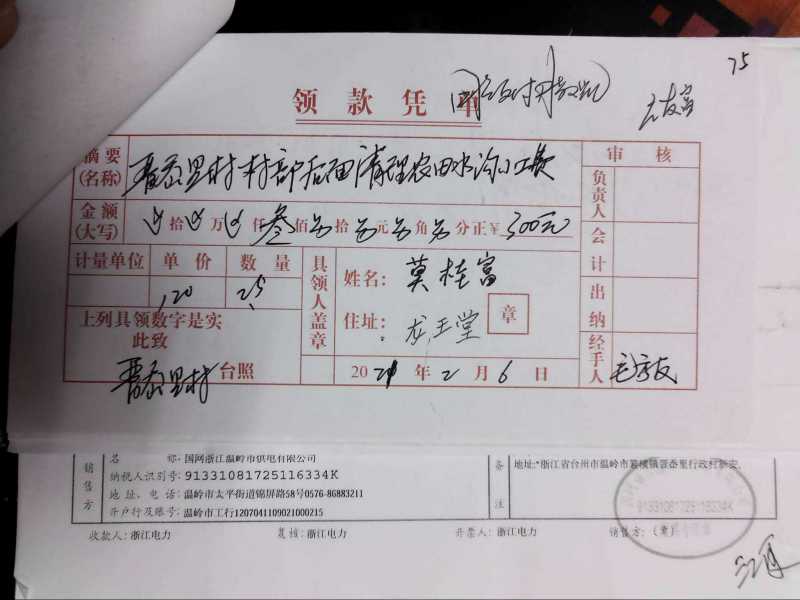 75
领款凭单
摘要(名称) 晋泰里村村部后面清理农田水沟小工款
审核
金额(大写) 拾 万 仟叁佰 拾 元 角 分正¥300元
负责人
计量单位 单价 数量
120 25
具领人盖章
姓名: 莫桂富
会计
住址: 龙王堂 章
出纳
上列具领数字是实
此致
晋泰里村 台照
2021年2月6日
经手人
销售方
名称: 国网浙江温岭市供电有限公司
纳税人识别号: 91331081725116334K
地址、电话: 温岭市太平街道锦屏路58号0576-86883211
开户行及账号: 温岭市工行1207041109021000215
备注
地址:"浙江省台州市温岭市箬横镇晋泰里行政村新安,
91331081725116334K
收款人: 浙江电力 复核: 浙江电力 开票人: 浙江电力 销售方: (章)